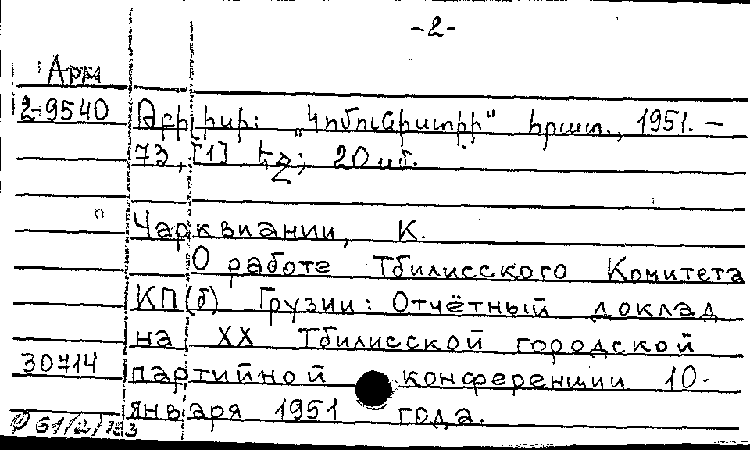 -2-
Арм
2-9540 Թբիլիսի: „Կոմունիստի“ հրատ., 1951. –
73, [1] էջ; 20 սմ.
Чарквиании, К.
О работе Тбилисского Комитета
КП(б) Грузии: Отчётный доклад
на XX Тбилисской городской
30714 партийной конференции 10-
января 1951 года.